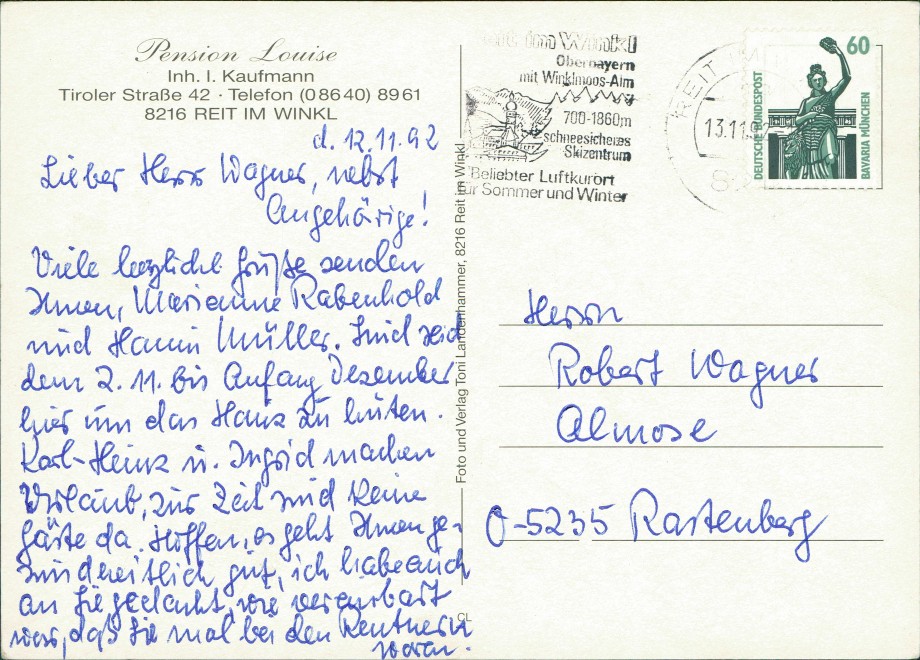 Pension Louise
Inh. I. Kaufmann
Tiroler Straße 42 · Telefon (0 86 40) 89 61
8216 REIT IM WINKL
d. 12.11.92
Lieber Herr Wagner, nebst
Angehörige!
Viele herzliche Grüße senden
Ihnen, Marianne Rabenhold
und Hanni Müller. Sind seid
dem 2.11. bis Anfang Dezember
hier um das Haus zu hüten.
Karl-Heinz u. Ingrid machen
Urlaub, zur Zeit sind keine
Gäste da. Hoffen, es geht Ihnen ge-
sundheitlich gut, ich habe auch
an Sie gedacht, wie vereinbart
war, daß Sie mal bei den Rentnern
waren.
Foto und Verlag Toni Landenhammer, 8216 Reit im Winkl
CL
Oberbayern
mit Winklmoos-Alm
700-1860m
schneesicheres
Skizentrum
Beliebter Luftkurort
für Sommer und Winter
REIT IM
13.11.9
8
60
DEUTSCHE BUNDESPOST
BAVARIA MÜNCHEN
Herrn
Robert Wagner
Almose
O-5235 Rastenberg